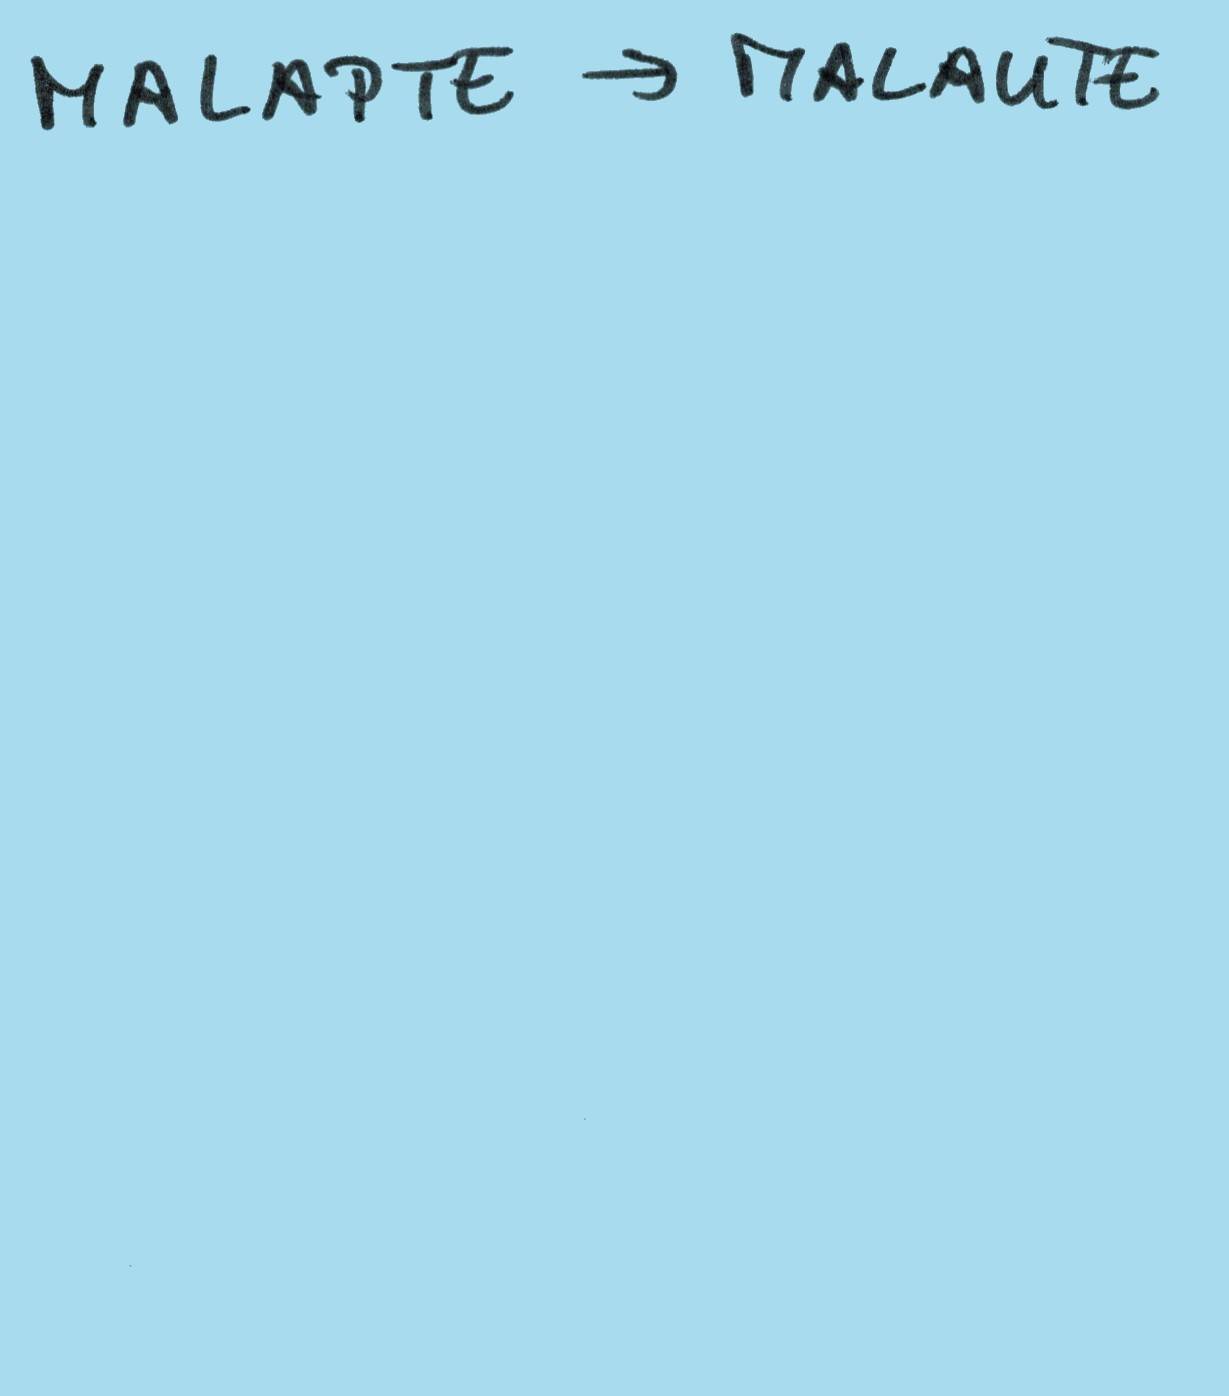 MALAPTE → MALAUTE